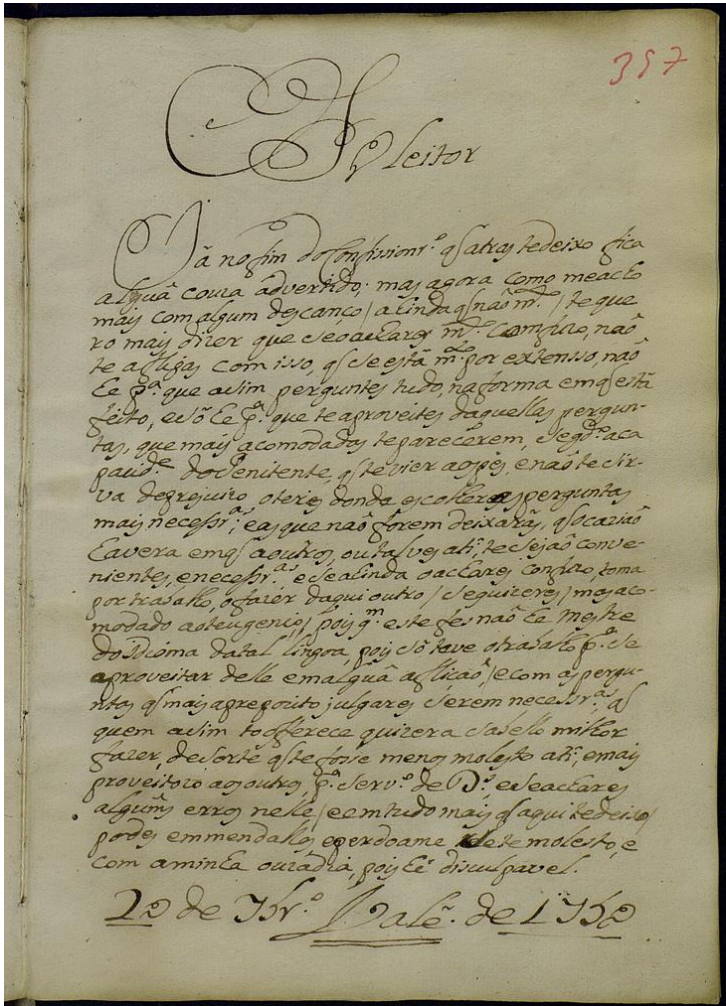 357
Ao Leitor
Jâ no fim do Confissionr.º q̃ atras te deixo fica
alguã couza advertido; mas agora como me acho
mais com algum descanço /ahinda q̃ não m.to/ te que
ro mais dizer que se o achares m.to Confuzo, não
te aflijas com isso, q̃ se está m.to por extensso, não
he p.ª que asim perguntes tudo, na forma em q̃ está
feito, e sô he p.ª que te aproveites daquellas pergun-
tas, que mais acomodadas te parecerem, segd.º a ca
paud.e do Penitente, q̃ te vier aos pês, e não te sir-
va de prejuizo o teres donde escolheres perguntas
mais necessr.as; e as que não forem deixarâs, q̃ ocazião
havera em q̃ a outros, ou talves a ti, te sejão conve-
nientes, e necessr.as e se ahinda o achares confuzo, toma
por trabalho, o fazer daqui outro / se quizeres / mas aco-
modado ao teu genio / pois q.m este fes não he Mestre
do Idioma da tal lingoa, pois sô teve o trabalho p.ª se
aproveitar delle em alguã aflicão / e com as pergu-
ntas q̃ mais a preposito julgares serem necessr.as, q̃
quem asim to offerece quizera sabello milhor
fazer, de sorte q̃ te fosse menos molesto a ti, e mais
proveitozo aos outros, p.ª serv.º de D.s, e se achares
alguns erros nelle / e em tudo mais q̃ aqui te deixo /
podes emmendallos, e perdoame de te molesto, e
com a minha ouzadia, pois hê disculpavel.
20 de 7br.º Valê. de 1750